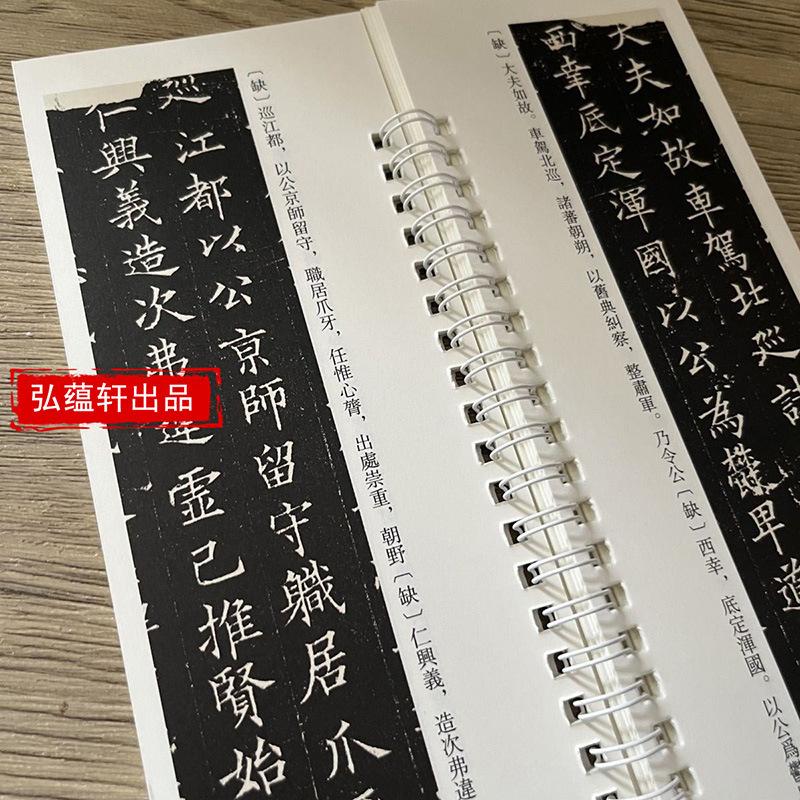 大夫如故車駕北巡
西幸底定渾國以公為欝卑道
〔缺〕大夫如故。車駕北巡，諸蕃朝朔，以舊典糾察，整肅軍。乃令公〔缺〕西幸，底定渾國。以公爲
〔缺〕巡江都，以公京師留守，職居爪牙，任惟心膂，出處崇重，朝野〔缺〕仁興義，造次弗違
巡江都以公京師留守職居爪
仁興義造次弗違虛己推賢始
弘蕴轩出品